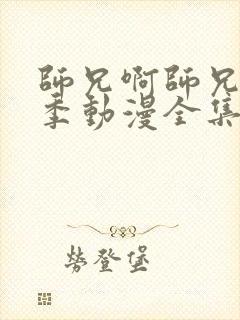 師兄啊師兄
季動漫全集
勞登堡